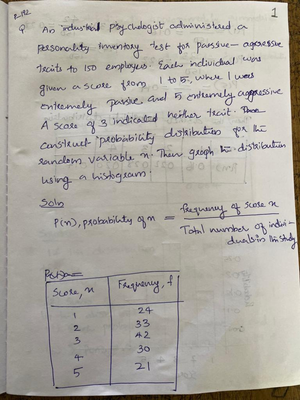 1
Q An industrial psychologist administered, a
Personality Inventory test for passive-aggressive
traits to 150 employees. Each individual was
given a score from 1 to 5, where 1 was
extremely passive and 5 extremely aggressive
A score of 3 indicated neither trait.
construct probability distribution for the
random variable x. Then graph the distribution
using a histogram.
Soln
P(x), probability of x = frequency of score x
Total number of indivi-
duals in the study
Score, x Frequency, f
1 24
2 33
3 42
4 30
5 21